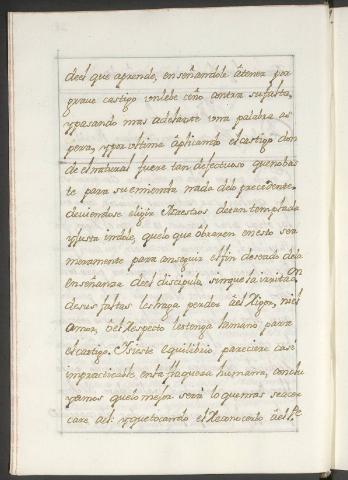 deel que aprende, enseñandole âtener por
graue castigo vn lebe ceño contra su falta,
ypasando mas adelante vna palabra as
pera, ypor vltimo âplicando el castigo don
de el natural fuere tan defectuoso quenobas
te para su emienda nada delo precedente.
deviendose eligir Maestros de tan templada
yjusta indole, quelo que obraren en esto sea
meramente para conseguir el fin deseado dela
enseñanza deel discipulo, sinque la irritaç.on
desus faltas les haga perder âel Rigor, niel
amor, ôel Respecto les tenga la mano para
el castigo. Ysieste equilibrio pareciere casi
impracticable en la flaqueza humana, conclu
yamos quelo mejor será lo que mas se acer
care a el: yque tocando el Reconocerlo âel P.e